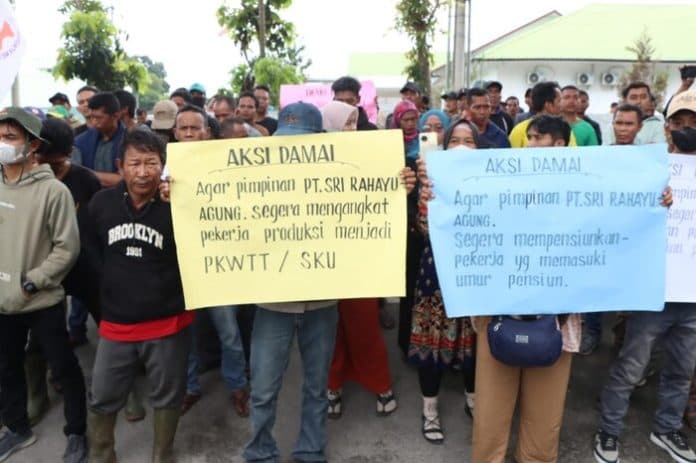 AKSI DAMAI
Agar pimpinan PT.SRI RAHAYU
AGUNG. segera mengangkat
pekerja produksi menjadi
PKWTT / SKU
AKSI DAMAI
Agar pimpinan PT.SRI RAHAYU
AGUNG.
Segera mempensiunkan-
pekerja yg memasuki
umur pensiun.
BROOKLYN
1901